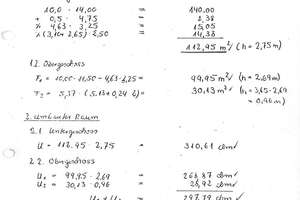 10,0 - 14,00 = 140.00
+ 0,5 - 4,75 = 2,38
4,63 - 3,25 = 15,05
2,50 = 14,38
112,95 m² (h = 2,75 m)
1.2. Obergeschoss
F₁ = 10,00 - 11,50 - 4,63 - 3,25 = 99,95 m² (h = 2,69 m)
F₂ = 5,37 · (5.13 + 0,24 = 30,13 m² (h = 3,65 - 2,69
= 0,96 m)
2. Umbauter Raum
2.1 Untergeschoss
U = 112,95 - 2,75 = 310,61 cbm
2.2. Obergeschoss
U₁ = 99,95 - 2,69 = 268,87 cbm
U₂ = 30,13 - 0,96 = 28,92 cbm
297,79 cbm